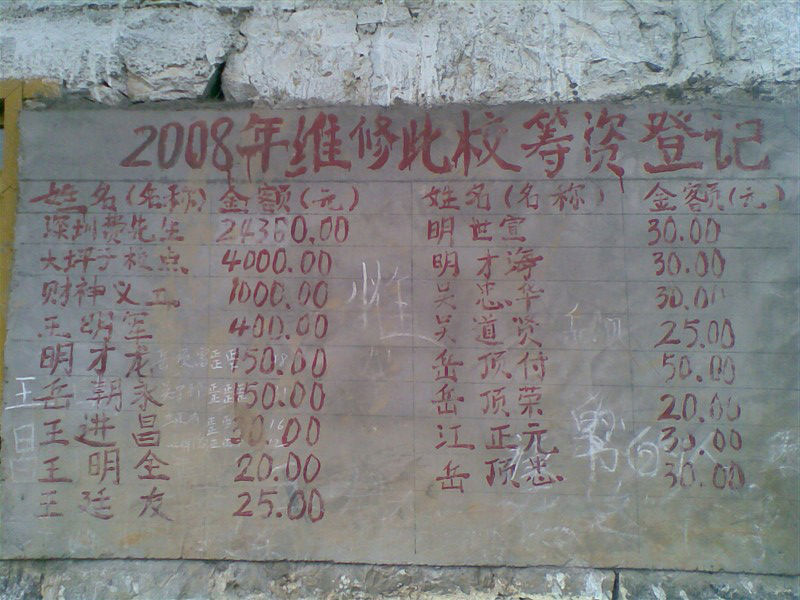 2008年维修此校筹资登记
姓名(名称) 金额(元) 姓名(名称) 金额(元)
深圳费先生 24380.00 明世宣 30.00
大坪子校点 4000.00 明才海 30.00
财神义工 1000.00 吴忠华 30.00
王明军 400.00 吴道贤 25.00
明才龙 50.00 岳顶付 50.00
岳朝永 50.00 岳顶荣 20.00
王进昌 30.00 江正元 30.00
王明全 20.00 岳顶忠 30.00
王廷友 25.00
王